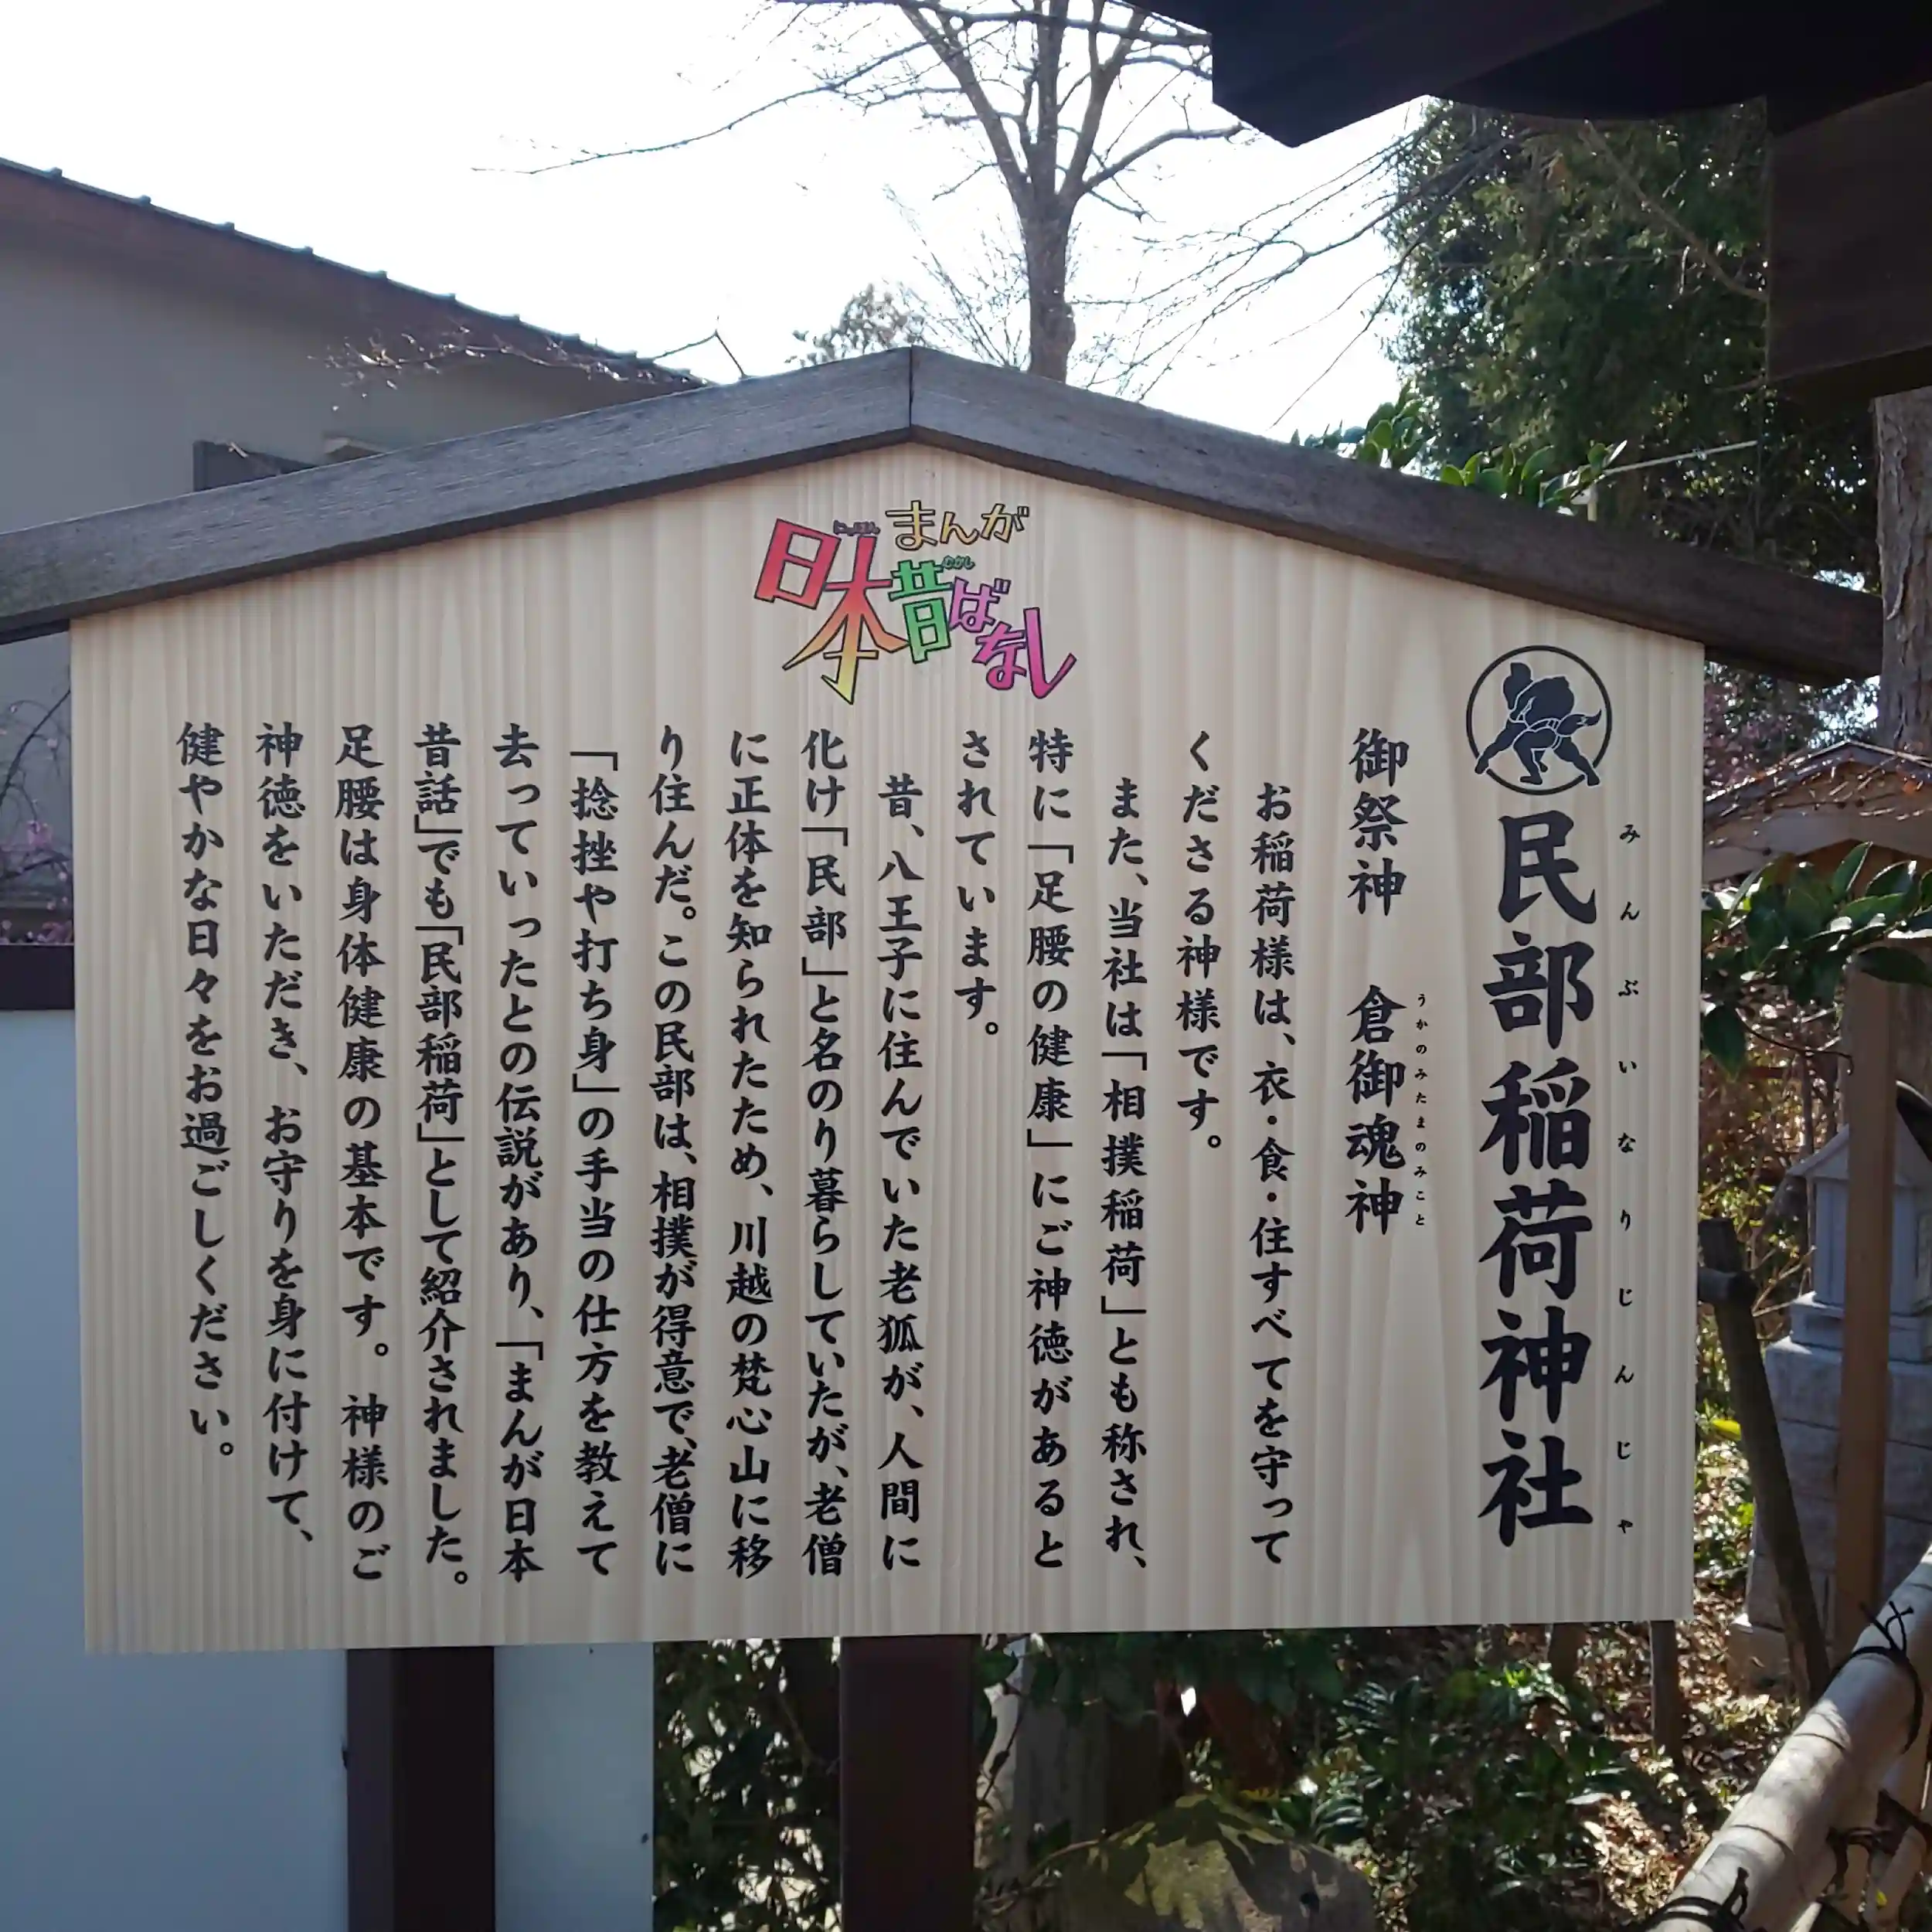 まんが
にっぽん
日本昔ばなし
むかし
みんぶいなりじんじゃ
民部稲荷神社
御祭神　倉御魂神
うかのみたまのみこと
お稲荷様は、衣・食・住すべてを守って
くださる神様です。
また、当社は「相撲稲荷」とも称され、
特に「足腰の健康」にご神徳があると
されています。
昔、八王子に住んでいた老狐が、人間に
化け「民部」と名のり暮らしていたが、老僧
に正体を知られたため、川越の梵心山に移
り住んだ。この民部は、相撲が得意で、老僧に
「捻挫や打ち身」の手当の仕方を教えて
去っていったとの伝説があり、「まんが日本
昔話」でも「民部稲荷」として紹介されました。
足腰は身体健康の基本です。神様のご
神徳をいただき、お守りを身に付けて、
健やかな日々をお過ごしください。